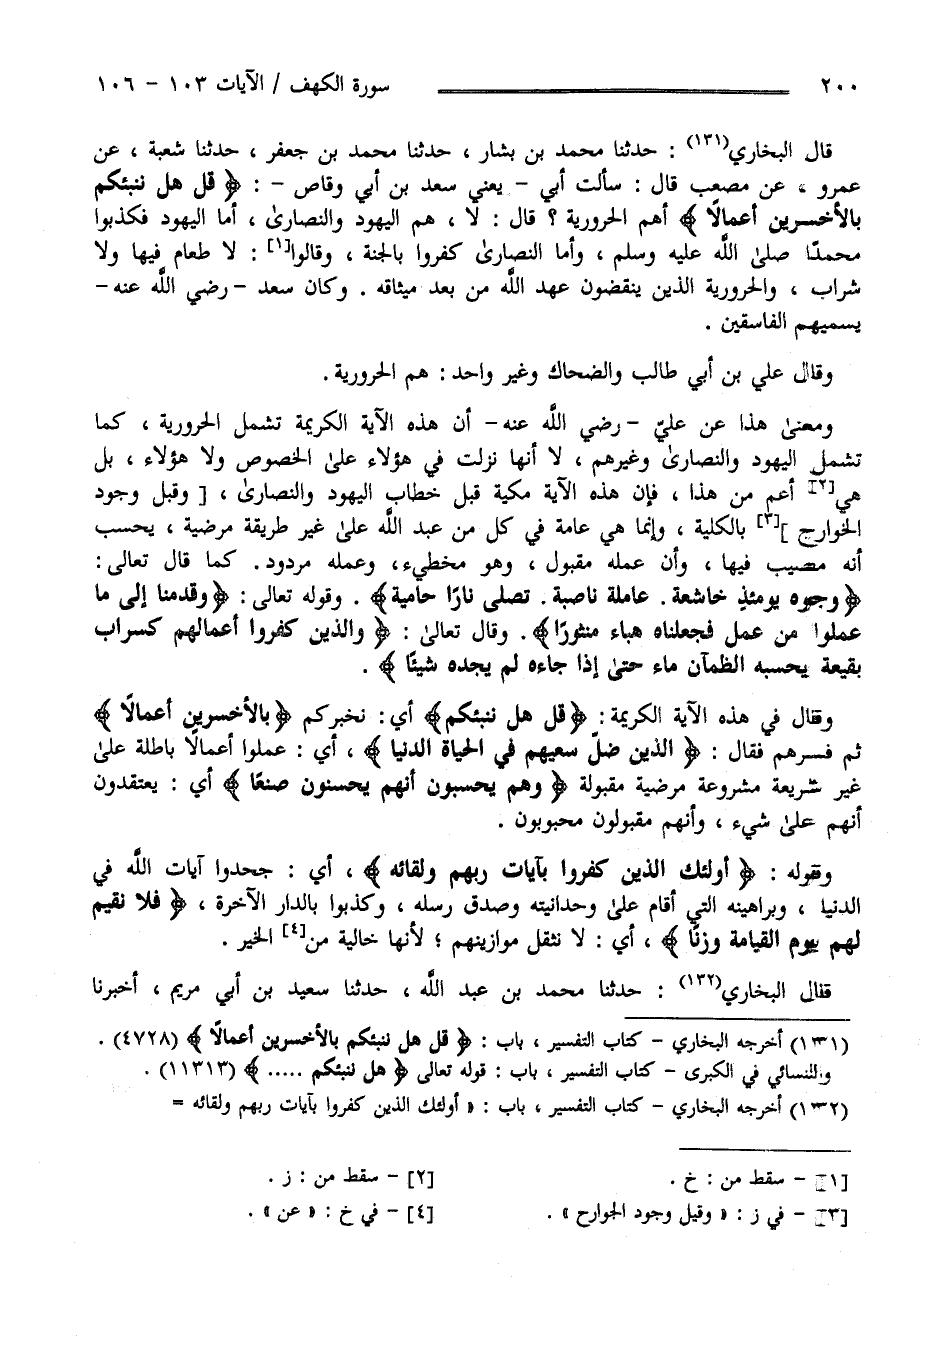 ٢٠٠ سورة الكهف / الآيات ١٠٣ - ١٠٦
قال البخاري(١٣١) : حدثنا محمد بن بشار ، حدثنا محمد بن جعفر ، حدثنا شعبة ، عن
عمرو ، عن مصعب قال : سألت أبي - يعني سعد بن أبي وقاص - : ﴿ قل هل ننبئكم
بالأخسرين أعمالًا ﴾ أهم الحرورية ؟ قال : لا ، هم اليهود والنصارىٰ ، أما اليهود فكذبوا
محمدًا صلىٰ اللَّه عليه وسلم ، وأما النصارىٰ كفروا بالجنة ، وقالوا[١] : لا طعام فيها ولا
شراب ، والحرورية الذين ينقضون عهد اللَّه من بعد ميثاقه . وكان سعد - رضي اللَّه عنه -
يسميهم الفاسقين .
وقال علي بن أبي طالب والضحاك وغير واحد : هم الحرورية .
ومعنىٰ هذا عن عليّ - رضي اللَّه عنه - أن هذه الآية الكريمة تشمل الحرورية ، كما
تشمل اليهود والنصارىٰ وغيرهم ، لا أنها نزلت في هؤلاء علىٰ الخصوص ولا هؤلاء ، بل
هي[٢] أعم من هذا ، فإن هذه الآية مكية قبل خطاب اليهود والنصارىٰ ، [ وقبل وجود
الخوارج ][٣] بالكلية ، وإنما هي عامة في كل من عبد اللَّه علىٰ غير طريقة مرضية ، يحسب
أنه مصيب فيها ، وأن عمله مقبول ، وهو مخطيء، وعمله مردود. كما قال تعالى :
﴿وجوه يومئذٍ خاشعة. عاملة ناصبة. تصلى نارًا حامية﴾ . وقوله تعالى : ﴿وقدمنا إلى ما
عملوا من عمل فجعلناه هباء منثورًا﴾. وقال تعالىٰ : ﴿ والذين كفروا أعمالهم كسراب
بقيعة يحسبه الظمآن ماء حتىٰ إذا جاءه لم يجده شيئًا ﴾ .
وقال في هذه الآية الكريمة : ﴿قل هل ننبئكم﴾ أي: نخبركم ﴿بالأخسرين أعمالًا ﴾
ثم فسرهم فقال : ﴿ الذين ضلّ سعيهم في الحياة الدنيا ﴾ ، أي : عملوا أعمالًا باطلة علىٰ
غير شريعة مشروعة مرضية مقبولة ﴿ وهم يحسبون أنهم يحسنون صنعًا ﴾ أي : يعتقدون
أنهم علىٰ شيء ، وأنهم مقبولون محبوبون .
وقوله : ﴿ أولئك الذين كفروا بآيات ربهم ولقائه ﴾ ، أي : جحدوا آيات اللَّه في
الدنيا ، وبراهينه التي أقام علىٰ وحدانيته وصدق رسله ، وكذبوا بالدار الآخرة ، ﴿ فلا نقيم
لهم يوم القيامة وزنًا ﴾ ، أي : لا نثقل موازينهم ؛ لأنها خالية من[٤] الخير .
قال البخاري(١٣٢) : حدثنا محمد بن عبد اللَّه ، حدثنا سعيد بن أبي مريم ، أخبرنا
(١٣١) أخرجه البخاري - كتاب التفسير ، باب : ﴿ قل هل ننبئكم بالأخسرين أعمالًا ﴾ (٤٧٢٨) .
والنسائي في الكبرى - كتاب التفسير ، باب : قوله تعالى ﴿ هل ننبئكم ..... ﴾ (١١٣١٣) .
(١٣٢) أخرجه البخاري - كتاب التفسير ، باب : « أولئك الذين كفروا بآيات ربهم ولقائه =
[١] - سقط من : خ . [٢] - سقط من : ز .
[٣] - في ز : « وقيل وجود الجوارح » . [٤] - في خ : « عن » .